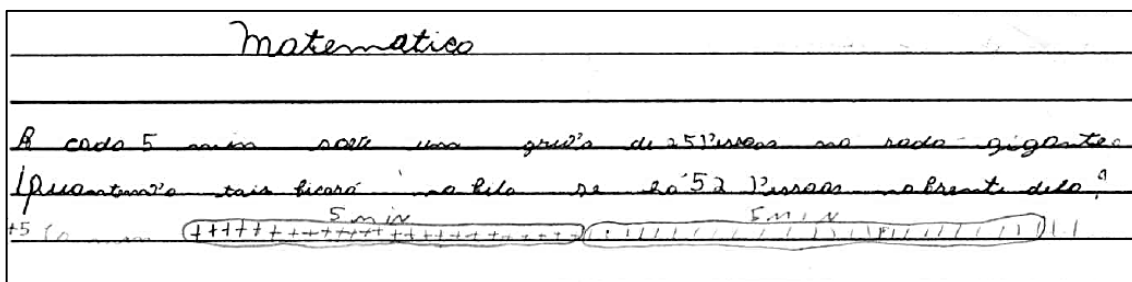 Matematica
A cada 5 min sobe um grupo de 25 Pessoas na roda-gigante
Quantempo tais ficará na fila se há 52 Pessoas na frente dela?
5 min 5 min
+5 10 min